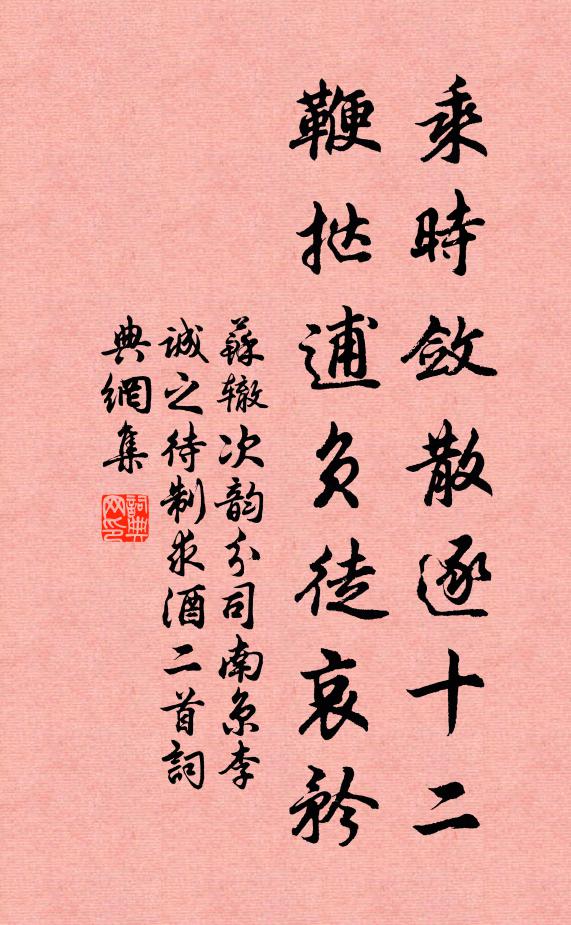 乘時斂散逐十二
鞭挞逋負徒哀矜
蘇辙次韵分司南京李
誠之待制求酒二首詞
典網集
詞典网印